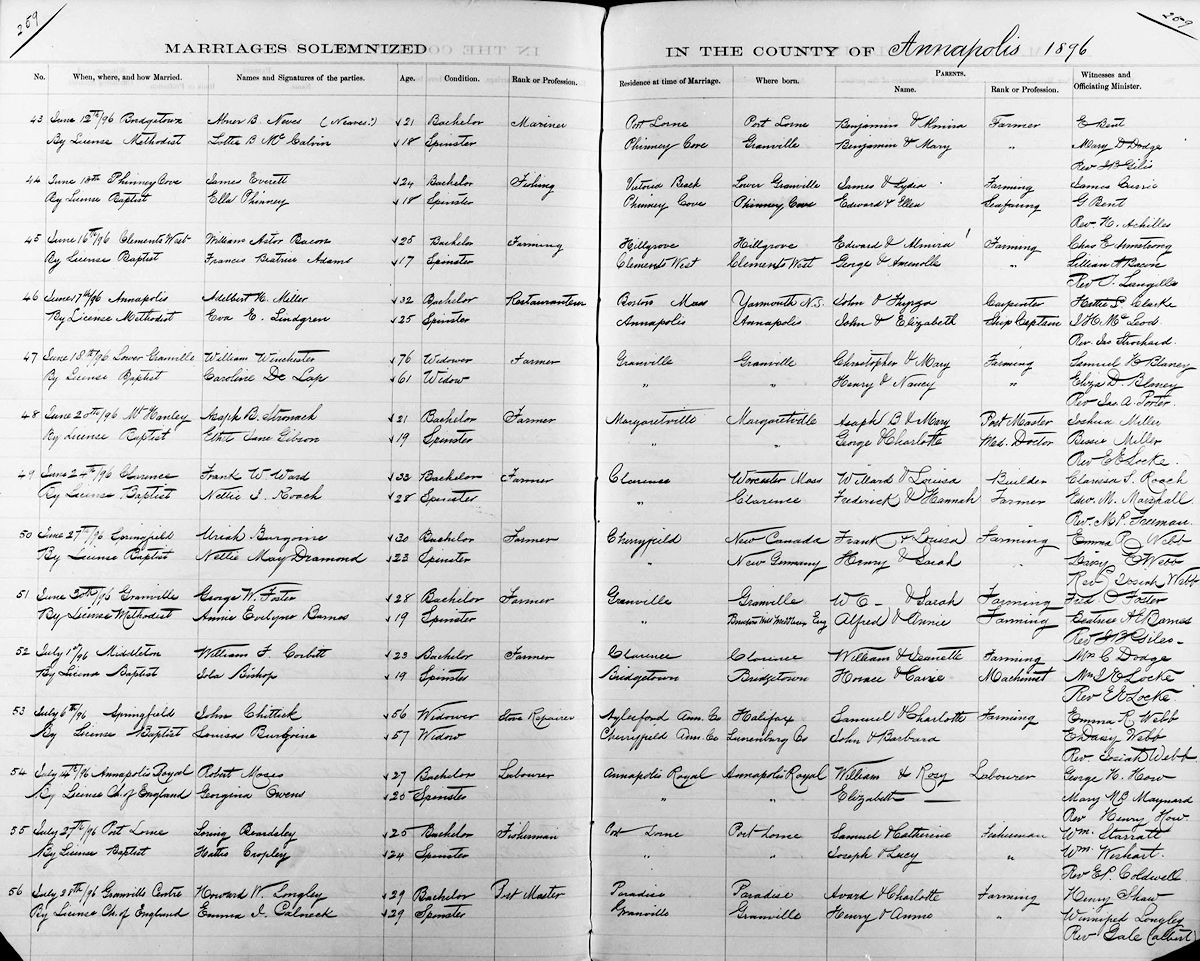 259
259
MARRIAGES SOLEMNIZED IN THE COUNTY OF Annapolis 1896
No. When, where, and how Married. Names and Signatures of the parties. Age. Condition. Rank or Profession. Residence at time of Marriage. Where born. PARENTS. Name. Rank or Profession. Witnesses and Officiating Minister.
43 June 12th/96 Bridgetown Abner B. Neves (Neaves?) 21 Bachelor Mariner Port Lorne Port Lorne Benjamin & Almira Farmer E Bent
By License Methodist Lottie B McCalvin 18 Spinster Phinney Cove Granville Benjamin & Mary " Mary D Dodge
Rev
44 June 13th Phinney Cove James Everett 24 Bachelor Fishing Victoria Beach Lower Granville James & Lydia Farming James
By License Baptist Ella Phinney 18 Spinster Phinney Cove Phinney Cove Edward & Ellen Seafaring G Bent
Rev. H. Achilles
45 June 16th/96 Clements West William Astor Bacon 25 Bachelor Farming Hillgrove Hillgrove Edward & Almira Farming Chas E Armstrong
By License Baptist Frances Beatrice Adams 17 Spinster Clements West Clements West George & "  Lillian A Bacon
Rev J. Langille
46 June 17th/96 Annapolis Adelbert H. Miller 32 Bachelor Restauranteur Boston Mass Yarmouth N.S. John & Carpenter Hattie S. Clarke
By License Methodist Eva E. Lindgren 25 Spinster Annapolis Annapolis John & Elizabeth Ship Captain J H McLeod
Rev. Jas Strothard
47 June 18th/96 Lower Granville William Winchester 76 Widower Farmer Granville Granville Christopher & Mary Farming Samuel H Blaney
By License Baptist Caroline De Lap 61 Widow " " Henry & Nancy " Eliza D. Blaney
Rev Jas. A. Porter.
48 June 20th/96 Mt Hanley Asaph B. Stronach 21 Bachelor Farmer Margaretville Margaretville Asaph B & Mary Post Master Joshua Miller
By License Baptist Ethel Jane Gibson 19 Spinster " " George & Charlotte Med. Doctor Bessie Miller
Rev E E Locke.
49 June 24th/96 Clarence Frank W. Ward 33 Bachelor Farmer Clarence Worcester Mass Willard & Louisa Builder Clarissa S. Roach
By License Baptist Nettie J. Roach 28 Spinster " Clarence Frederick & Hannah Farmer Edw. M. Marshall
Rev. M. P. Freeman
50 June 27th/96 Springfield Uriah Burgoine 30 Bachelor Farmer Cherryfield New Canada Frank & Louisa Farming Emma R Webb
By License Baptist Nettie May Dramond 23 Spinster New Germany Henry & Sarah " Daisy E Webb
Rev Josiah Webb
51 June 30th/96 Granville George W. Foster 28 Bachelor Farmer Granville Granville W C - & Sarah Farming Fred C Foster
By License Methodist Annie Evelyne Barnes 19 Spinster " Eng Alfred & Annie Farming Beatrice A E Barnes
Rev Giles
52 July 1st/96 Middleton William F. Corbitt 23 Bachelor Farmer Clarence Clarence William & Jeanette Farming Mrs C Dodge
By License Baptist Iola Bishop 19 Spinster Bridgetown Bridgetown Horace & Carrie Machinist Mrs E E Locke
Rev E E Locke
53 July 6th/96 Springfield John Chittick 56 Widower Stove Repairer Aylesford Ann. Co Halifax Samuel & Charlotte Farming Emma R Webb
By License Baptist Louisa Burgoine 57 Widow Cherryfield Ann. Co Lunenburg Co John & Barbara E Daisy Webb
Rev Josiah Webb
54 July 14th/96 Annapolis Royal Robert Moses 27 Bachelor Labourer Annapolis Royal Annapolis Royal William & Rosy Labourer George H. How
By License Ch. of England Georgina Owens 20 Spinster " " Elizabeth — Mary M B Maynard
Rev Henry How
55 July 27th/96 Port Lorne Loring Beardsley 25 Bachelor Fisherman Port Lorne Port Lorne Samuel & Catherine Fisherman Wm. Starratt
By License Baptist Hattie Cropley 24 Spinster " " Joseph & Lucy " Wm. Weshart.
Rev E P. Coldwell
56 July 28th/96 Granville Centre Howard W. Longley 29 Bachelor Post Master Paradise Paradise Avard & Charlotte Farming Henry Shaw
By License Ch. of England Emma J. Calneck 29 Spinster Granville Granville Henry & Annie " Winnifred Longley
Rev Gale (albert)